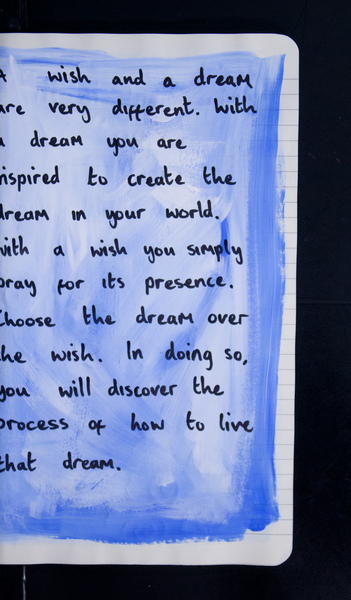 A wish and a dream
are very different. With
a dream you are
inspired to create the
dream in your world.
With a wish you simply
pray for its presence.
Choose the dream over
the wish. In doing so,
you will discover the
process of how to live
that dream.